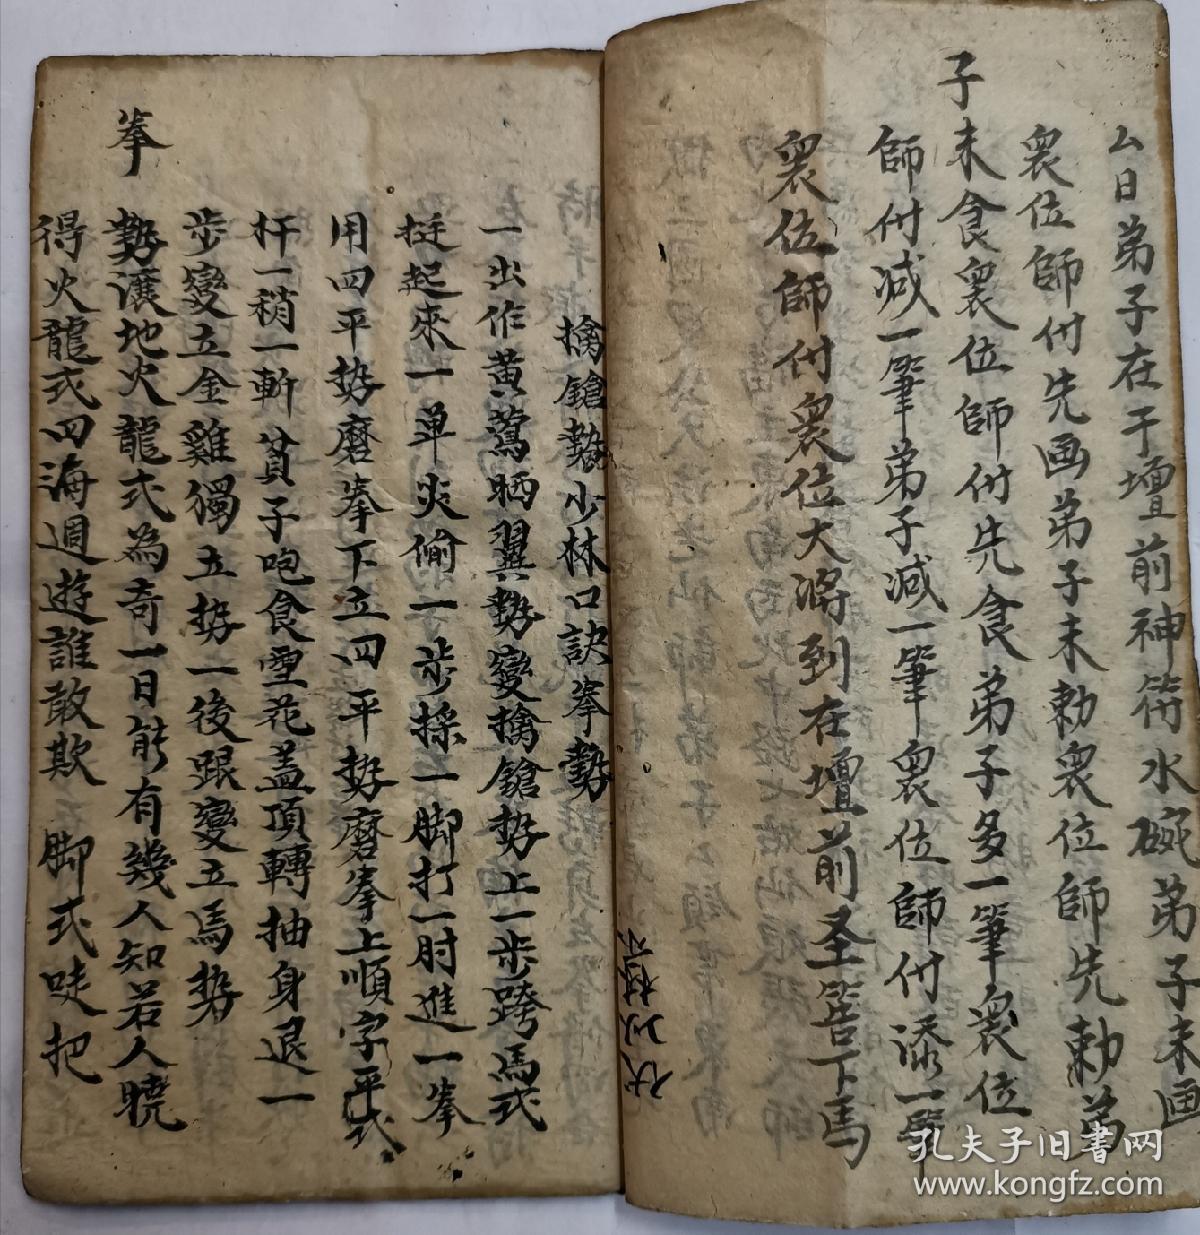 厶日弟子在于壇前神符水碗弟子未画
衆位師付先画弟子未勅衆位師先勅弟
子未食衆位師付先食弟子多一筆衆位
師付减一筆弟子减一筆衆位師付添一筆
衆位師付衆位大将到在壇前圣筶下馬
擒鎗勢少林口訣拳勢
一出作黄鶯晒翼勢變擒鎗势上一步跨馬式
挺起來一单炎偷一步採一脚打一肘進一拳
用四平势磨拳下立四平势磨拳上順字平式
扦一稍一斬貧子咆食雪花盖頂轉抽身退一
步變立金雞獨立势一後跟變立馬势
拳勢滾地火龍式為奇一日能有幾人知若人曉
得火龍式四海週遊誰敢欺 脚式哇把
孔夫子旧书网
www.kongfz.com